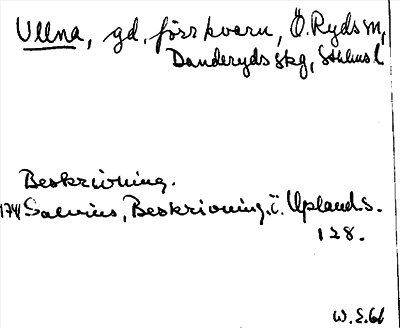 Ullna, gd, förr kvarn, Ö. Ryds sn,
Danderyds skg, Sthlms l
Beskrivning.
1741 Salvius, Beskrivning. ö. Upland s.
128.
W. E. 61